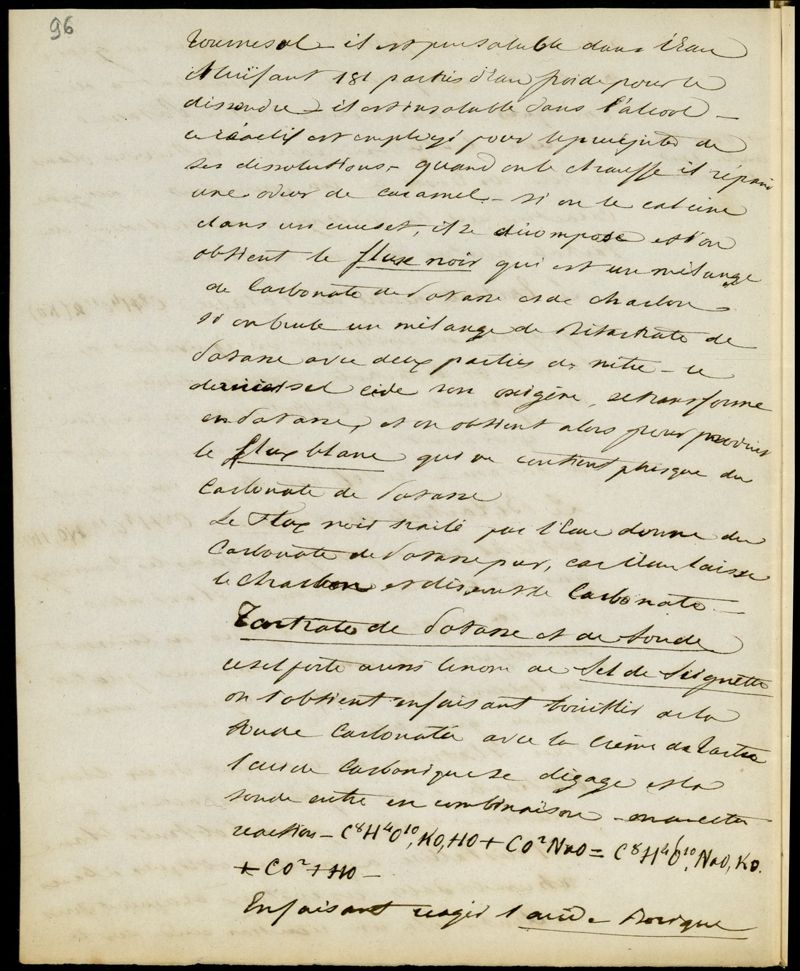 96
Tournesol – il est peu soluble dans l'Eau
il lui faut 181 parties d'eau froide pour le
dissoudre – il est insoluble dans l'alcool –
ce réactif est employé pour
ses dissolutions – quand on le chauffe il répand
une odeur de caramel – si on le calcine
dans un creuset, il se décompose et l'on
obtient le flux noir qui est un mélange
de Carbonate de Potasse et de charbon
si on brule un mélange de Bitartrate de
Potasse avec deux parties de nitre – ce
dernier sel cède son oxigène, se transforme
en Potasse, et on obtient alors pour produit
le flux blanc qui ne contient presque du
Carbonate de Potasse
Le Flux noir traité par l'Eau donne du
Carbonate de Potasse pur, car l'Eau laisse
le charbon et dissout le Carbonate –
Tartrate de Potasse et de Soude
ce sel porte aussi le nom de Sel de Seignette
on l'obtient en faisant bouillir de la
Soude Carbonatée avec la Crème de Tartre
l'acide Carbonique se dégage et la
soude entre en combinaison – on a cette
reaction – C⁸H⁴O¹⁰, KO, HO + CO² NaO = C⁸H⁴O¹⁰, NaO, KO.
+ CO² + HO –
En faisant reagir l'acide Borique